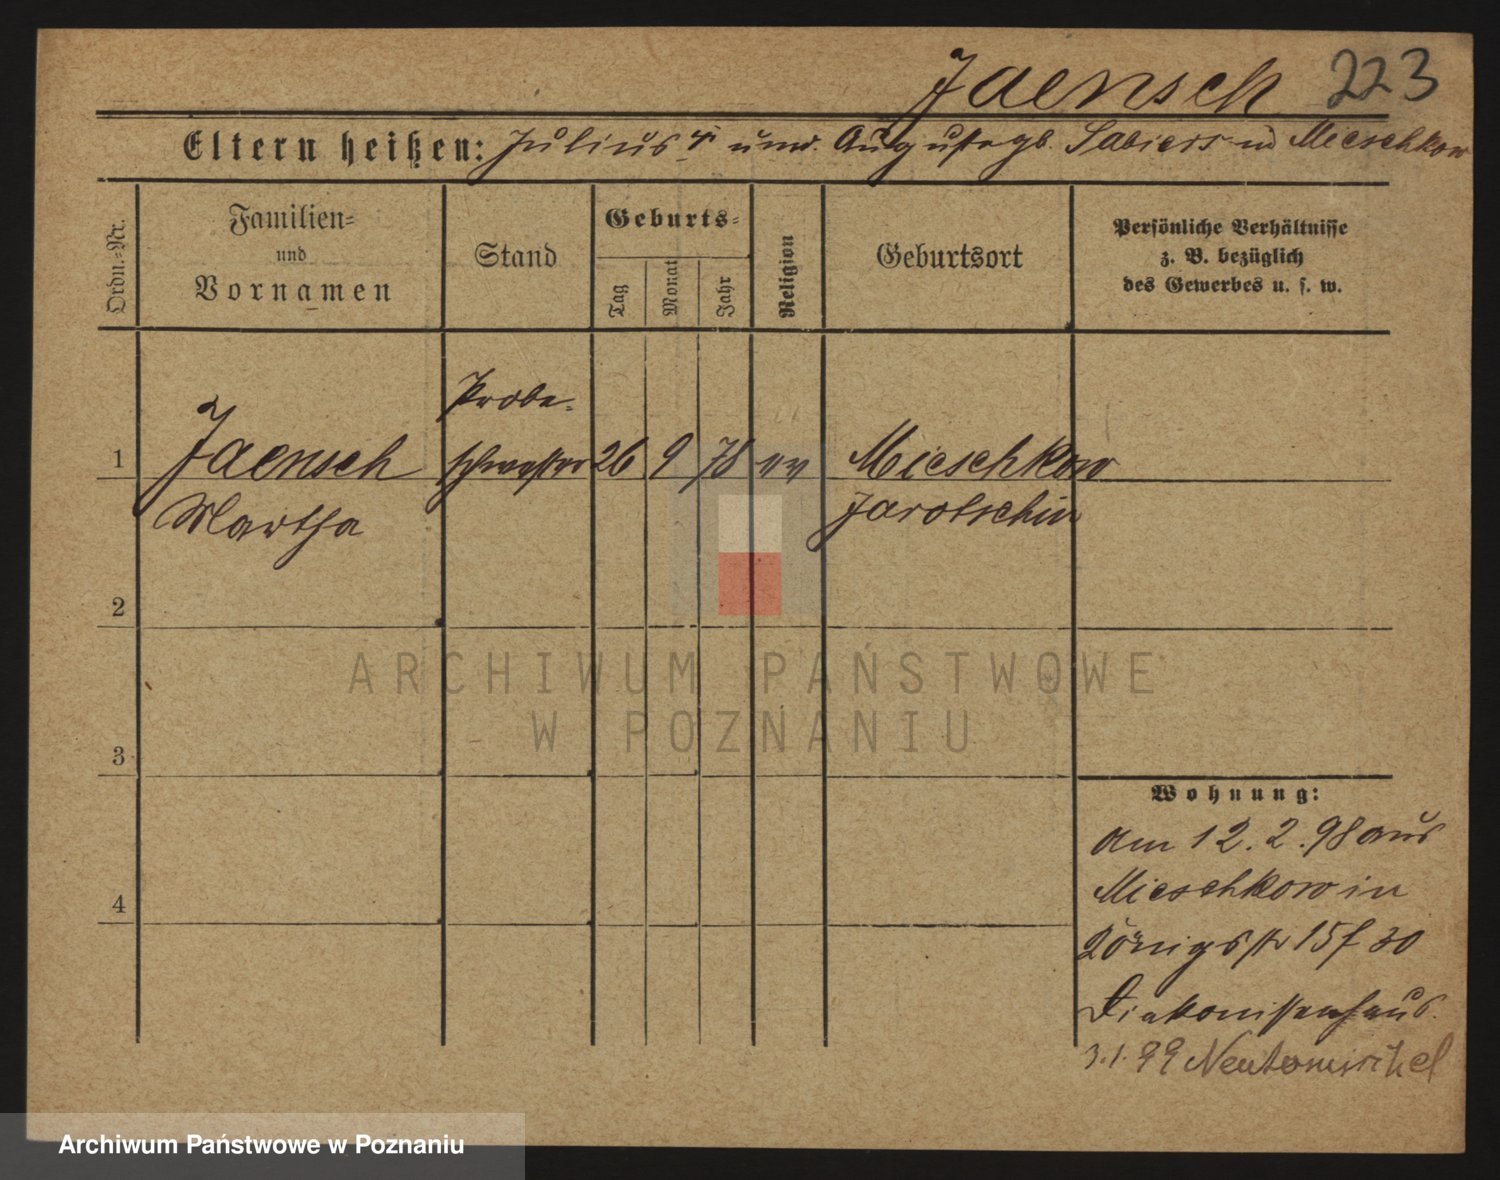 Jaensch 223
Eltern heißen: Julius und. Auguste gb. in Mieschkow
Ordn.-Nr.
Familien-
und
Vornamen
Stand
Geburts-
Tag
Monat
Jahr
Religion
Geburtsort
Persönliche Verhältnisse
z. B. bezüglich
des Gewerbes u. s. w.
Probe-
1 Jaensch schwester 26 9 78 ev Mieschkow
Martha Jarotschin
2
ARCHIWUM PAŃSTWOWE
W POZNANIU
3
Wohnung:
am 12.2.98 aus
4 Mieschkow in
Königstr 15 f 30
Diakonissenhaus.
3.1.99 Neutomischel
Archiwum Państwowe w Poznaniu